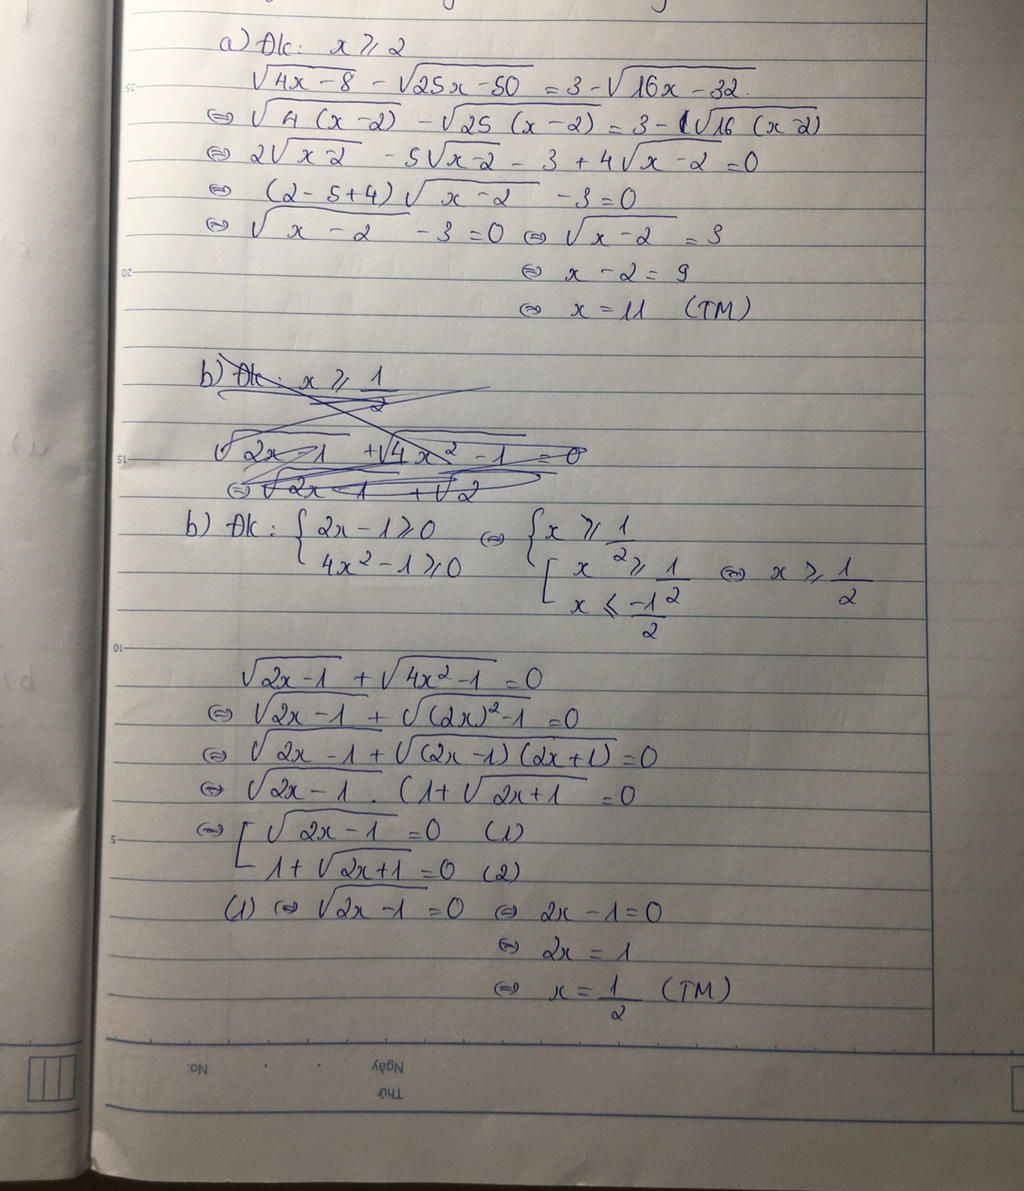 a) Đk: x ⩾ 2
√(4x - 8) - √(25x - 50) = 3 - √(16x - 32)
⇔ √(4(x - 2)) - √(25(x - 2)) = 3 - √(16(x - 2))
⇔ 2√(x - 2) - 5√(x - 2) - 3 + 4√(x - 2) = 0
⇔ (2 - 5 + 4)√(x - 2) - 3 = 0
⇔ √(x - 2) - 3 = 0 ⇔ √(x - 2) = 3
⇔ x - 2 = 9
⇔ x = 11 (TM)
b) Đk: x ⩾ 1/2
√(2x - 1) + √(4x² - 1) = 0
⇔ √(2x - 1) + √2
b) Đk: { 2x - 1 ⩾ 0 ⇔ { x ⩾ 1/2
4x² - 1 ⩾ 0 [ x ⩾ 1/2 ⇔ x ⩾ 1/2
x ⩽ -1/2
√(2x - 1) + √(4x² - 1) = 0
⇔ √(2x - 1) + √((2x)² - 1) = 0
⇔ √(2x - 1) + √((2x - 1)(2x + 1)) = 0
⇔ √(2x - 1) . (1 + √(2x + 1) = 0
⇔ [ √(2x - 1) = 0 (1)
1 + √(2x + 1) = 0 (2)
(1) ⇔ √(2x - 1) = 0 ⇔ 2x - 1 = 0
⇔ 2x = 1
⇔ x = 1/2 (TM)
25
20
15
10
5
No.
Ngày
Thứ